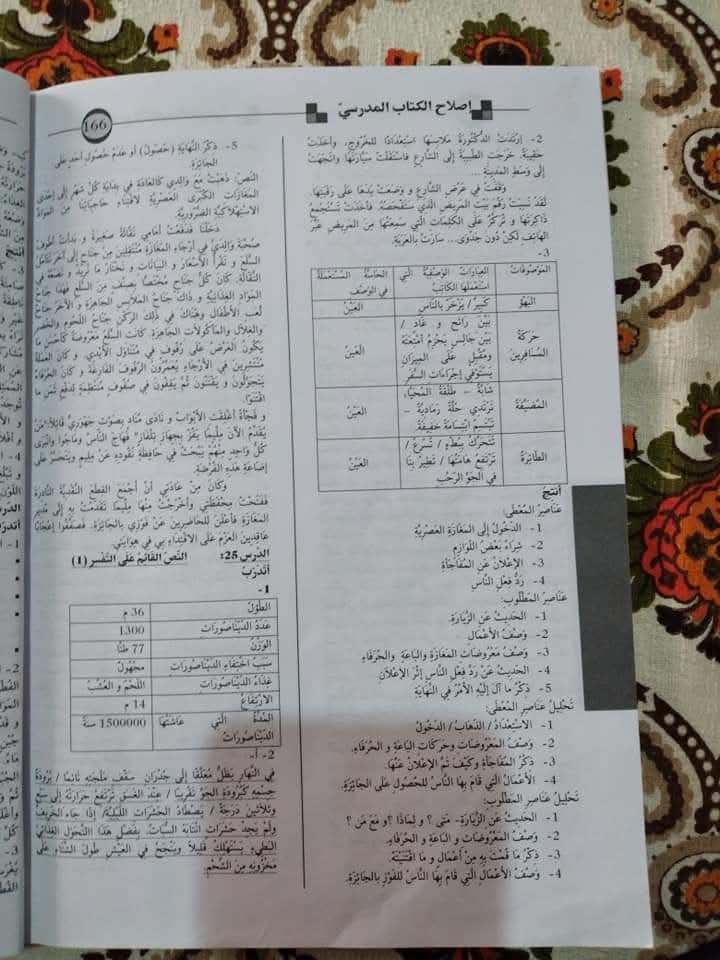 إصلاح الكتاب المدرسيّ
166
2- اِرْتَدَتِ الدّكْتُورَةُ مَلَابِسَهَا اسْتِعْدَادًا لِلْخُرُوجِ، وأَخَذَتْ
حَقِيبَةً. خَرَجَتِ الطَّبِيبَةُ إِلَى الشَّارِعِ فَاسْتَقَلَّتْ سَيَّارَتَهَا وَاتَّجَهَتْ
إِلَى وَسَطِ المَدِينَةِ ...
وَقَفَتْ فِي عَرْضِ الشَّارِعِ وَ وَضَعَتْ يَدَهَا عَلَى رَقَبَتِهَا.
لَقَدْ نَسِيَتْ رَقْمَ بَيْتِ المَرِيضِ الَّذِي سَتَفْحَصُهُ. فَأَخَذَتْ تَسْتَجْمِعُ
ذَاكِرَتَهَا وَ تُرَكِّزُ عَلَى الكَلِمَاتِ الَّتِي سَمِعَتْهَا مِنَ المَرِيضِ عَبْرَ
الهَاتِفِ لَكِنْ دُونَ جَدْوَى... سَارَتْ بِالعَرَبَةِ.
3-
المَوْصُوفَاتُ العِبَارَاتُ الوَصْفِيَّةُ الَّتِي اسْتَعْمَلَهَا الكَاتِبُ الحَاسَّةُ المُسْتَعْمَلَةُ فِي الوَصْفِ
البَهْوُ كَبِيرٌ / يَزْخَرُ بِالنَّاسِ العَيْنُ
حَرَكَةُ المُسَافِرِينَ بَيْنَ رَائِحٍ وَ غَادٍ / بَيْنَ جَالِسٍ يَحْزِمُ أَمْتِعَتَهُ وَمُقْبِلٍ عَلَى المِيزَانِ يَسْتَوْفِي إِجْرَاءَاتِ السَّفَرِ العَيْنُ
المُضِيفَةُ شَابَّةٌ – طَلْقَةُ المُحَيَّا، تَرْتَدِي حُلَّةً رَمَادِيَّةً – تَبْتَسِمُ ابْتِسَامَةً خَفِيفَةً العَيْنُ
الطَّائِرَةُ تَتَحَرَّكُ بِبُطْءٍ / تُسْرِعُ / تَرْتَفِعُ هَامَتُهَا / تَطِيرُ بِنَا فِي الجَوِّ الرَّحْبِ العَيْنُ
أنتج
عَنَاصِرُ المُعْطَى:
1- الدُّخُولُ إِلَى المَغَازَةِ العَصْرِيَّةِ
2- شِرَاءُ بَعْضِ اللَّوَازِمِ
3- الإِعْلَانُ عَنِ المُفَاجَأَةِ
4- رَدُّ فِعْلِ النَّاسِ
عَنَاصِرُ المَطْلُوبِ:
1- الحَدِيثُ عَنِ الزِّيَارَةِ.
2- وَصْفُ الأَعْمَالِ
3- وَصْفُ مَعْرُوضَاتِ المَغَازَةِ وَالبَاعَةِ وَالحُرَفَاءِ
4- الحَدِيثُ عَنْ رَدِّ فِعْلِ النَّاسِ إِثْرَ الإِعْلَانِ
5- ذِكْرُ مَا آلَ إِلَيْهِ الأَمْرُ فِي النِّهَايَةِ
تَحْلِيلُ عَنَاصِرِ المُعْطَى:
1- الاسْتِعْدَادُ / الذَّهَابُ / الدُّخُولُ
2- وَصْفُ المَعْرُوضَاتِ وَحَرَكَاتِ البَاعَةِ وَ الحُرَفَاءِ.
3- ذِكْرُ المُفَاجَأَةِ وَكَيْفَ تَمَّ الإِعْلَانُ عَنْهَا.
4- الأَعْمَالُ الَّتِي قَامَ بِهَا النَّاسُ لِلْحُصُولِ عَلَى الجَائِزَةِ.
تَحْلِيلُ عَنَاصِرِ المَطْلُوبِ:
1- الحَدِيثُ عَنِ الزِّيَارَةِ- مَتَى ؟ وَ لِمَاذَا ؟وَ مَعَ مَنْ ؟
2- وَصْفُ المَعْرُوضَاتِ وَ البَاعَةِ وَ الحُرَفَاءِ.
3- ذِكْرُ مَا قُمْتَ بِهِ مِنْ أَعْمَالٍ وَ مَا اقْتَنَيْتَهُ.
4- وَصْفُ الأَعْمَالِ الَّتِي قَامَ بِهَا النَّاسُ لِلْفَوْزِ بِالجَائِزَةِ.
5- ذِكْرُ النِّهَايَةِ (حُصُولُ) أو عَدَمُ حُصُولِ أَحَدٍ عَلَى
الجَائِزَةِ.
النَّصّ: ذَهَبْتُ مَعَ وَالِدِي كَالعَادَةِ فِي نِهَايَةِ كُلِّ شَهْرٍ إِلَى إِحْدَى
المَغَازَاتِ الكُبْرَى العَصْرِيَّةِ لِاقْتِنَاءِ حَاجِيَاتِنَا مِنَ المَوَادِّ
الاسْتِهْلَاكِيَّةِ الضَّرُورِيَّةِ.
دَخَلْنَا فَدَفَعْتُ أَمَامِي نَقَّالَةً صَغِيرَةً وَ بَدَأْتُ أَطُوفُ
صُحْبَةَ وَالِدِي فِي أَرْجَاءِ المَغَازَةِ مُنْتَقِلِينَ مِنْ جَنَاحٍ إِلَى آخَرَ نَتَأَمَّلُ
السِّلَعَ وَ نَقْرَأُ الأَسْعَارَ وَ البَيَانَاتِ وَ نَخْتَارُ مَا نُرِيدُ وَ نَضَعُهُ فِي
النَّقَّالَةِ. كَانَ كُلُّ جَنَاحٍ مُخْتَصًّا بِصِنْفٍ مِنَ السِّلَعِ فَهَذَا جَنَاحُ
المَوَادِّ الغِذَائِيَّةِ وَ ذَاكَ جَنَاحُ المَلَابِسِ الجَاهِزَةِ وَ الآخَرُ جَنَاحُ
لُعَبِ الأَطْفَالِ وَهُنَاكَ فِي ذَلِكَ الرُّكْنِ جَنَاحُ اللُّحُومِ وَالخُضَرِ
وَالغِلَالِ وَالمَأْكُولَاتِ الجَاهِزَةِ. كَانَتِ السِّلَعُ مَعْرُوضَةً كَأَحْسَنِ مَا
يَكُونُ العَرْضُ عَلَى رُفُوفٍ فِي مُتَنَاوَلِ الأَيْدِي. وَ كَانَ العَمَلَةُ
مُنْتَشِرِينَ فِي الأَرْجَاءِ يُعَمِّرُونَ الرُّفُوفَ الفَارِغَةَ وَ كَانَ الحُرَفَاءُ
يَتَجَوَّلُونَ وَ يَقْتَنُونَ ثُمَّ يَقِفُونَ فِي صُفُوفٍ مُنْتَظِمَةٍ لِدَفْعِ ثَمَنِ مَا
اقْتَنَوْا.
وَ فَجْأَةً أُغْلِقَتِ الأَبْوَابُ وَ نَادَى مُنَادٍ بِصَوْتٍ جَهْوَرِيٍّ قَائِلًا:"مَنْ
يُقَدِّمُ الآنَ مِلِّيمًا يَفُزْ بِجِهَازِ تِلْفَازٍ" فَهَاجَ النَّاسُ وَمَاجُوا وَانْبَرَى
كُلُّ وَاحِدٍ مِنْهُمْ يَبْحَثُ فِي حَافِظَةِ نُقُودِهِ عَنْ مِلِّيمٍ وَيَتَحَسَّرُ عَلَى
إِضَاعَةِ هَذِهِ الفُرْصَةِ.
وَكَانَ مِنْ عَادَتِي أَنْ أَجْمَعَ القِطَعَ النَّقْدِيَّةَ النَّادِرَةَ
فَفَتَحْتُ مِحْفَظَتِي وَأَخْرَجْتُ مِنْهَا مِلِّيمًا تَقَدَّمْتُ بِهِ إِلَى مُدِيرِ
المَغَازَةِ فَأَعْلَنَ لِلْحَاضِرِينَ عَنْ فَوْزِي بِالجَائِزَةِ. فَصَفَّقُوا إِعْجَابًا
عَاقِدِينَ العَزْمَ عَلَى الاقْتِدَاءِ بِي فِي هِوَايَتِي.
الدّرس 25: النّصّ القائم على التّفسير (1)
أتدرّب
1-
الطُّولُ 36 م
عَدَدُ الدَّيْنَاصُورَاتِ 1300
الوَزْنُ 77 طنًّا
سَبَبُ اخْتِفَاءِ الدَّيْنَاصُورَاتِ مَجْهُولٌ
غِذَاءُ الدَّيْنَاصُورَاتِ اللَّحْمُ وَ العُشْبُ
الارْتِفَاعُ 14 م
المُدَّةُ الَّتِي عَاشَتْهَا الدَّيْنَاصُورَاتُ 1500000 سنةً
2- أ-
فِي النَّهَارِ يَظَلُّ مُعَلَّقًا إِلَى جُدْرَانِ سَقْفِ مَلْجَئِهِ نَائِمًا / بُرُودَةُ
جِسْمِهِ كَبُرُودَةِ الجَوِّ تَقْرِيبًا / عِنْدَ الغَسَقِ تَرْتَفِعُ حَرَارَتُهُ إِلَى سَبْعٍ
وَثَلَاثِينَ دَرَجَةً / يَصْطَادُ الحَشَرَاتِ اللَّيْلِيَّةَ/ إِذَا جَاءَ الخَرِيفُ
وَلَمْ يَجِدْ حَشَرَاتٍ انْتَابَهُ السُّبَاتُ. بِفَضْلِ هَذَا التَّحَوُّلِ الغِذَائِيِّ
البَطِيءِ، يَسْتَهْلِكُ قَلِيلًا وَيَنْجَحُ فِي العَيْشِ طُولَ الشِّتَاءِ عَلَى
مَخْزُونِهِ مِنَ الشَّحْمِ.